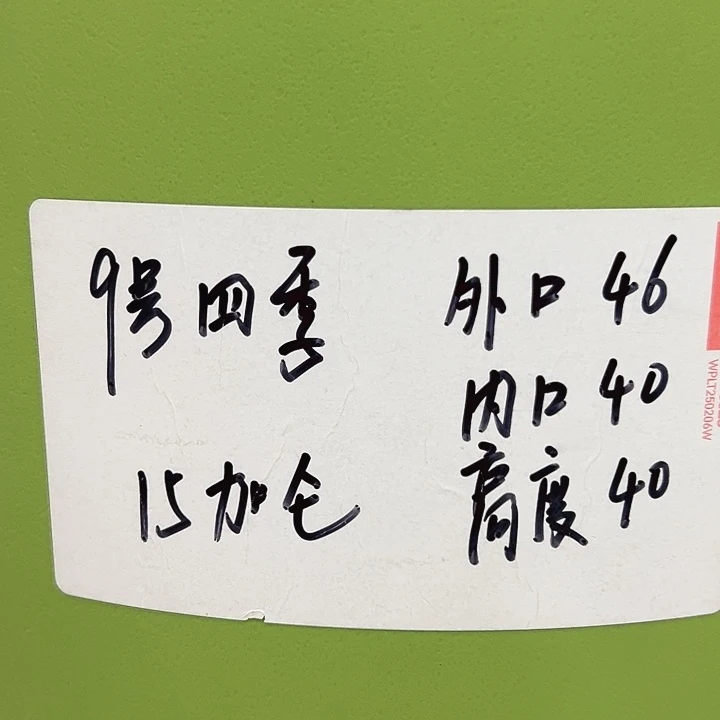 9号四季
15加仑
外口 46
内口 40
高度 40
WPLT250206W